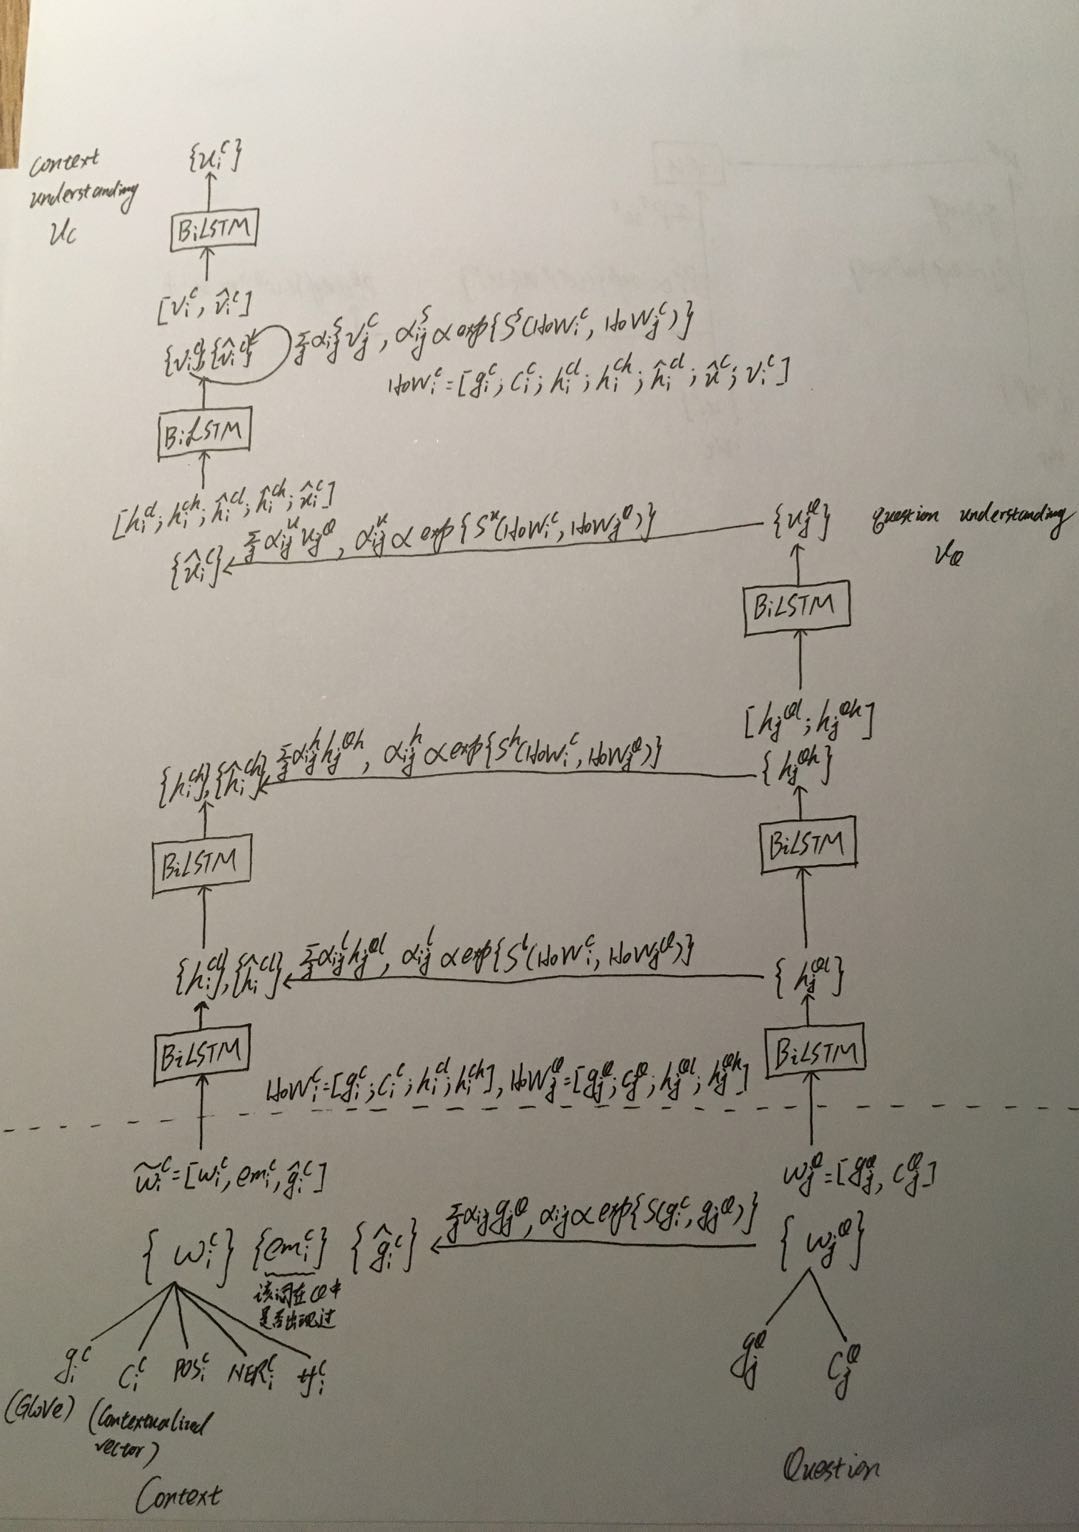 Context
understanding
U_C
{u_i^C}
BiLSTM
[v_i^C, v̂_i^C]
{v_i^C}{v̂_i^C} Σ_j α_ij^S v_j^C, α_ij^S ∝ exp{S^S(HoW_i^C, HoW_j^C)}
HoW_i^C = [g_i^C; c_i^C; h_i^{Cl}; h_i^{Ch}; ĥ_i^{Cl}; û^C; v_i^C]
BiLSTM
[h_i^{Cl}; h_i^{Ch}; ĥ_i^{Cl}; ĥ_i^{Ch}; û_i^C]
{û_i^C} Σ_j α_ij^u u_j^Q, α_ij^u ∝ exp{S^u(HoW_i^C, HoW_j^Q)} {u_j^Q}
question understanding
U_Q
BiLSTM
[h_j^{Ql}; h_j^{Qh}]
{h_i^{Ch}},{ĥ_i^{Ch}} Σ_j α_ij^h h_j^{Qh}, α_ij^h ∝ exp{S^h(HoW_i^C, HoW_j^Q)} {h_j^{Qh}}
BiLSTM BiLSTM
{h_i^{Cl}},{ĥ_i^{Cl}} Σ_j α_ij^l h_j^{Ql}, α_ij^l ∝ exp{S^l(HoW_i^C, HoW_j^Q)} {h_j^{Ql}}
BiLSTM BiLSTM
HoW_i^C = [g_i^C; c_i^C; h_i^{Cl}; h_i^{Ch}], HoW_j^Q = [g_j^Q; c_j^Q; h_j^{Ql}; h_j^{Qh}]
w̃_i^C = [w_i^C, em_i^C, ĝ_i^C] w_j^Q = [g_j^Q, c_j^Q]
{w_i^C} {em_i^C} {ĝ_i^C} Σ_j α_ij g_j^Q, α_ij ∝ exp{S(g_i^C, g_j^Q)} {w_j^Q}
该词在Q中
是否出现过
g_i^C C_i^C POS_i^C NER_i^C tf_i^C g_j^Q C_j^Q
(GloVe) (Contextualized
vector)
Context Question